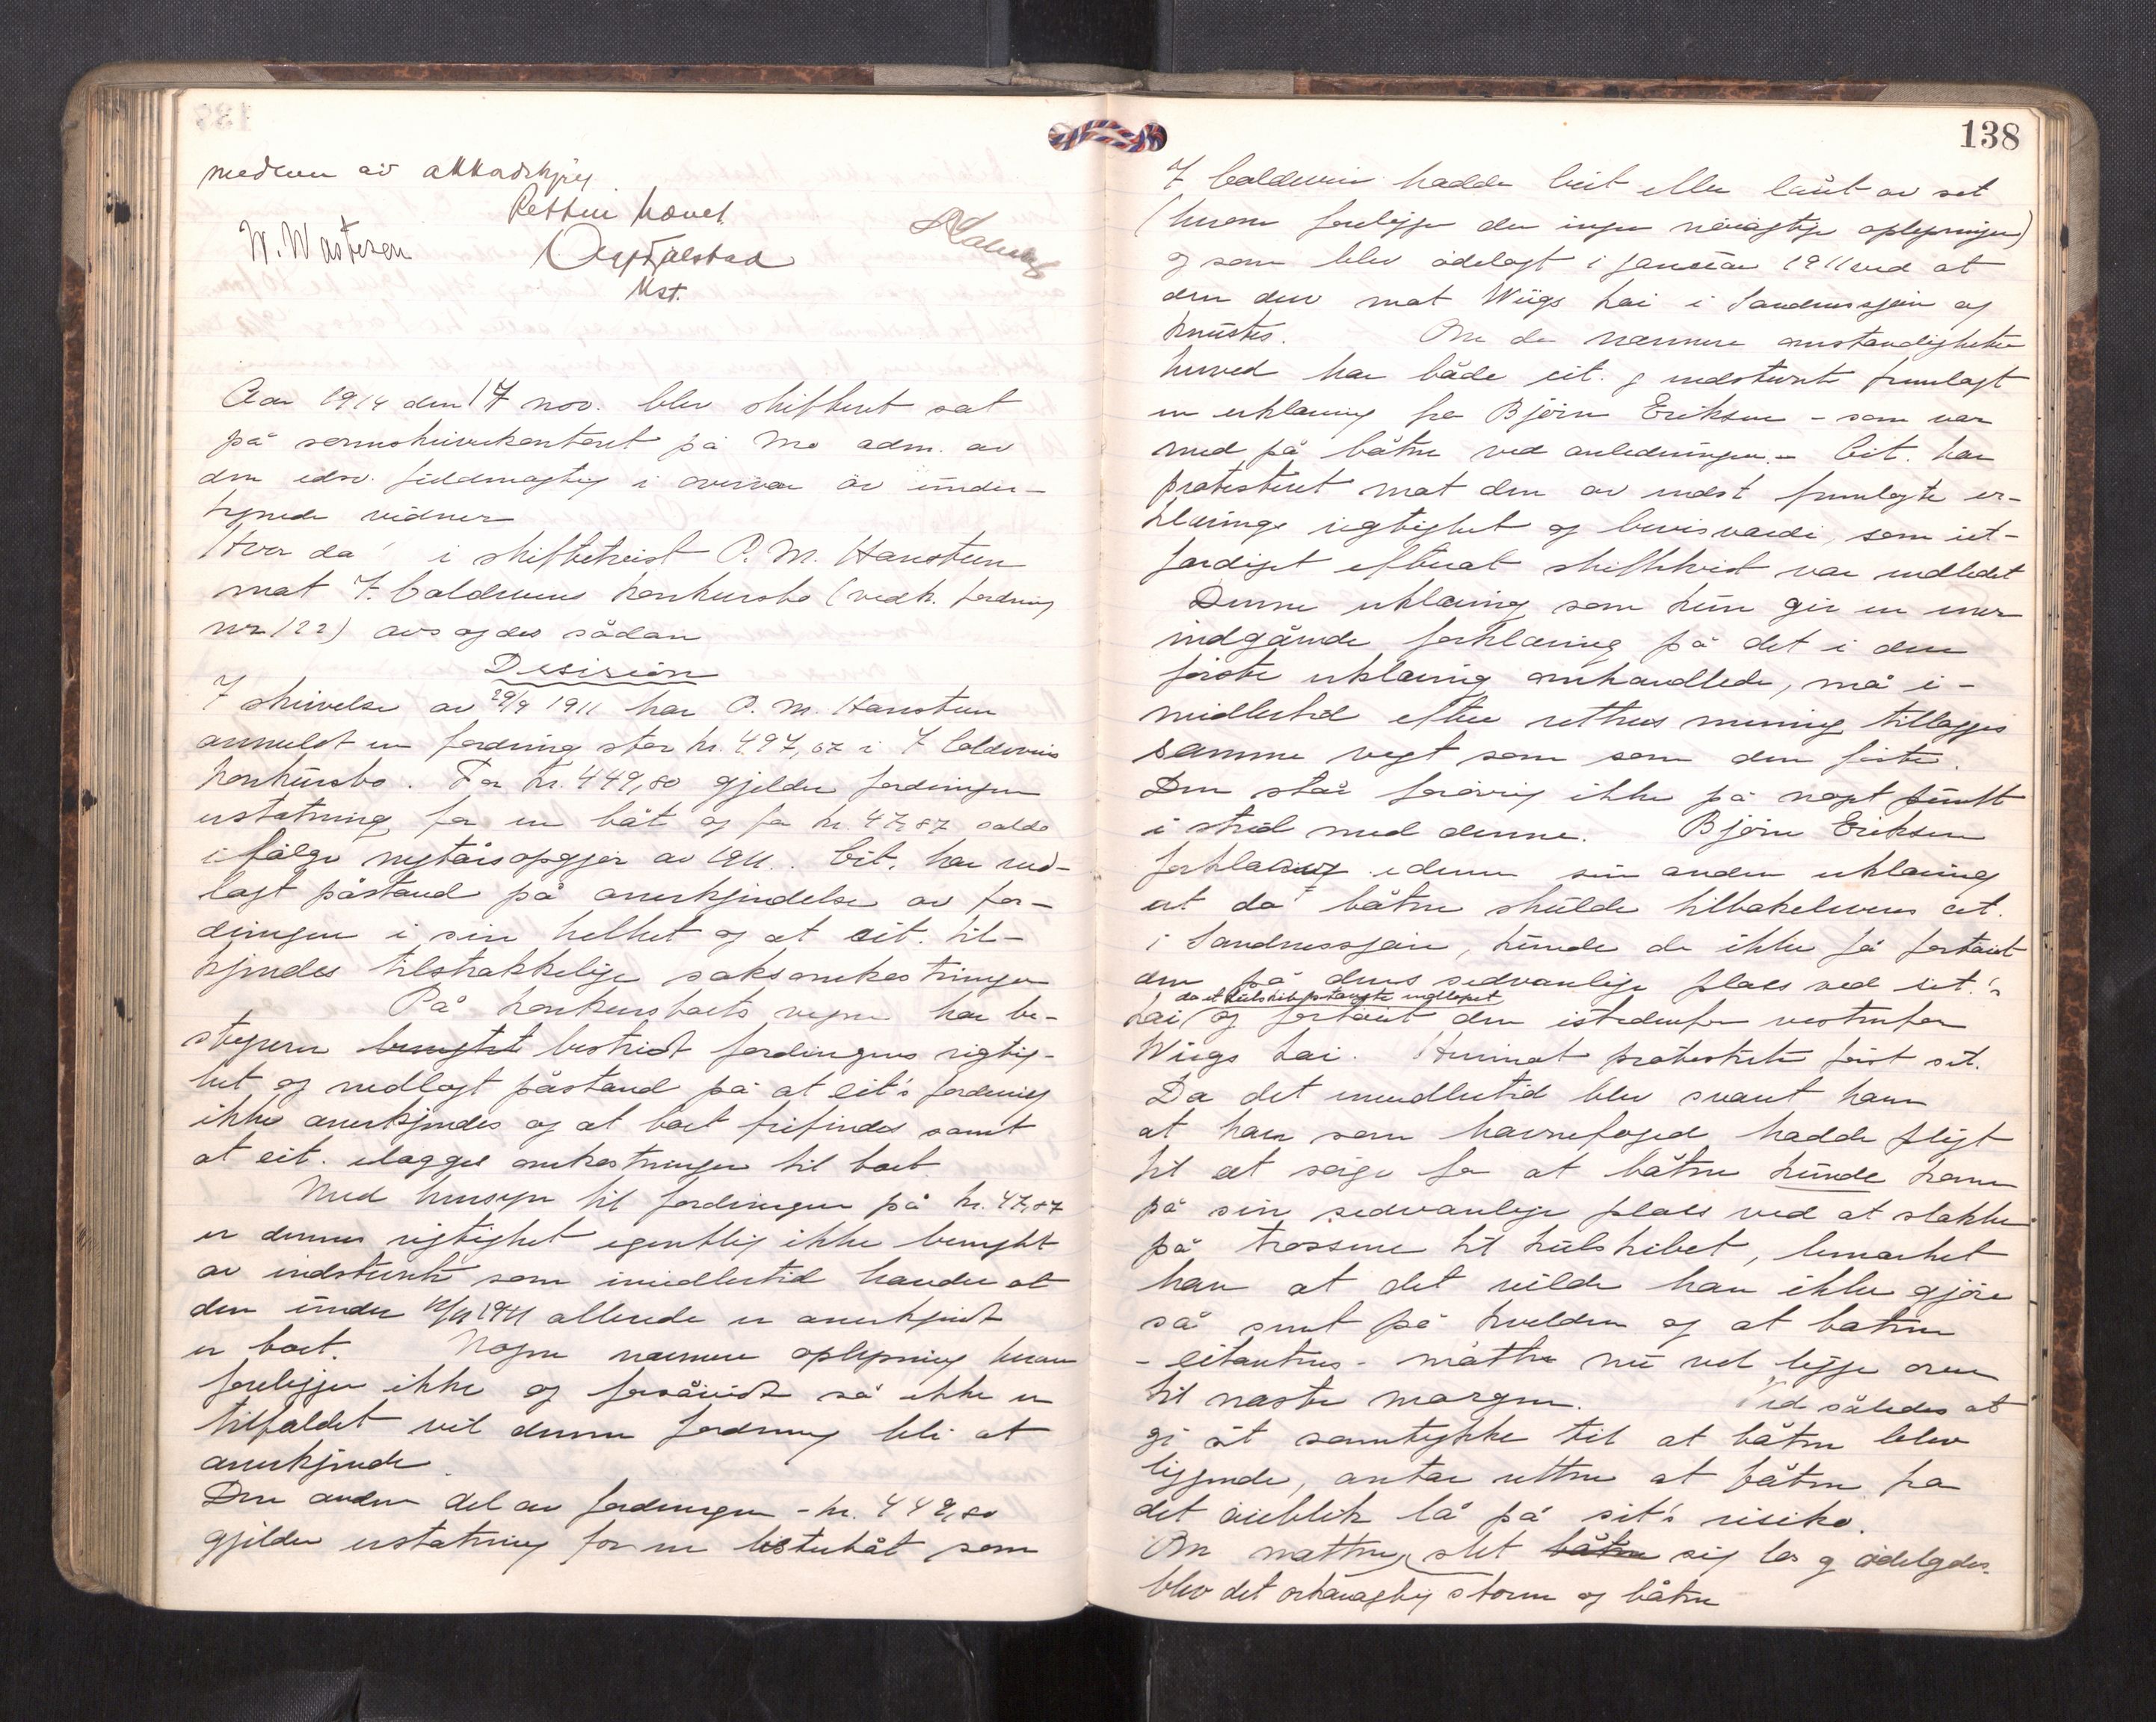 138
medlem av akkordstyre
Retten hævet
W. Wastesen
Kst.
Aar 1914 den 17 nov. blev skifteret sat
på sorenskriverkontoret på Mo adm. av
den edsv. fuldmægtig i overvær av under-
tegnede vidner
Hvor da i skiftetvist P. M. Hausteen
mot J. Coldevins konkursbo (vedk. fordring
nr 122) avsagdes sådan
Decision
I skrivelse av 29/9 1911 har P. M. Hausteen
anmeldt en fordring stor kr. 497,67 i J Coldevins
konkursbo. For kr. 449,80 gjelder fordringen
erstatning for en båt og for kr. 47,87 saldo
ifølge nytårsopgjør av 1911. Cit. har ned-
lagt påstand på anerkjendelse av for-
dringen i sin helhet og at cit. til-
kjendes tilstrækkelige saksomkostninger
På konkursboets vegne har be-
styreren benegtet bestridt fordringens rigtig-
het og nedlagt påstand på at cit's fordring
ikke anerkjendes og at boet frifindes samt
at cit. ilægges omkostninger til boet.
Med hensyn til fordringen på kr. 47,87
er dennes rigtighet egentlig ikke benegtet
av indstevnte som imidlertid hævder at
den under 11/11 1911 allerede er anerkjendt
av boet. Nogen nærmere oplysning herom
foreligger ikke og forsåvidt så ikke er
tilfældet vil denne fordring bli at
anerkjende.
Den anden del av fordringen - kr. 449,80
gjelder erstatning for en listerbåt som
J Coldevin hadde leiet eller lånt av cit
(herom foreligger der ingen nøiagtige oplysninger)
og som blev ødelagt i januar 1911 ved at
den drev mot Wiigs kai i Sandnessjøen og
knustes. Om de nærmere omstændigheter
herved har både cit. og indstevnte fremlagt
en erklæring fra Bjørn Eriksen - som var
med på båten ved anledningen. - Cit. har
protestert mot den av indst fremlagte er-
klærings rigtighet og bevisværdi, som ut-
færdiget efterat skiftetvist var indledet
Denne erklæring som kun gir en mer
indgående forklaring på det i den
første erklæring omhandlede, må i-
midlertid efter rettens mening tillægges
samme vegt som som den første.
Den står forøvrig ikke på noget punkt
i strid med denne. Bjørn Eriksen
forklaring i denne sin anden erklæring
at da båten skulde tilbakeleveres cit.
i Sandnessjøen, kunde de ikke få fortøiet
den på dens sedvanlige plads ved cit.'s
da et kulskib stængte indløpet
kai og fortøiet den istedenfor vestenfor
Wiigs kai. Herimot protesterte først cit.
Da det imidlertid blev svaret ham
at han som havnefoged hadde pligt
til at sørge for at båten kunde komme
på sin sedvanlige plads ved at slakke
på trossene til kulskibet, bemærket
han at det vilde han ikke gjøre
så sent på kvelden og at båten
- citantens - måtte nu vel ligge over
til næste morgen. Ved således at
gi sit samtykke til at båten blev
liggende, antar retten at båten fra
det øieblik lå på cit's risiko.
Om natten slet båten sig løs og ødelagdes.
blev det orkanagtig storm og båten